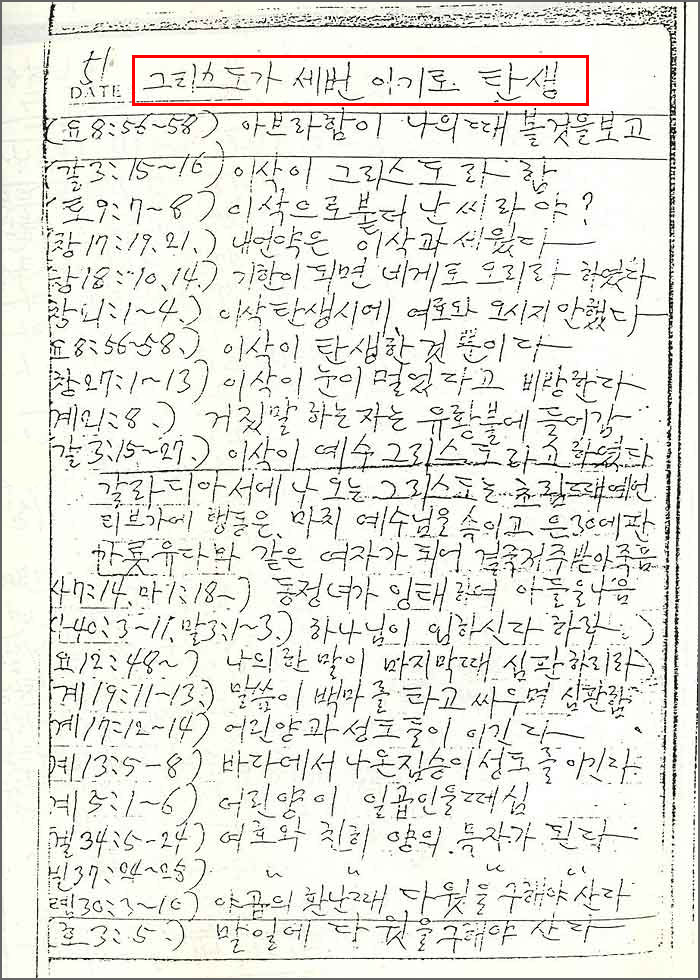 51
DATE 그리스도가 세번 이기로 탄생
(요8:56~58) 아브라함이 나의때 볼것을보고
(갈3:15~16) 이삭이 그리스도라 함
(로9:7~8) 이삭으로붙터 난 씨라야?
창17:19,21,) 내언약은 이삭과 세웠다
창18:10,14,) 기한이 되면 네게로 오리라 하였다
창21:1~4,) 이삭탄생시에 여호와 오시지 안했다
요8:56~58,) 이삭이 탄생한것 뿐이다
창27:1~13) 이삭이 눈이 멀었다고 비방한다
계21:8.) 거짓말 하는자는 유황불에 들어감
갈3:15~27,) 이삭이 예수그리스도라고 하였다
갈라디아서에 나오는 그리스도는 초림때예언
리브가에 행동은 마치 예수님을 속이고 은30에판
가룟유다와 같은 여자가 되어 결국저주받아죽음
사7:14, 마1:18~) 동정녀가 잉태하여 아들을나음
사40:3~11, 말3:1~3,) 하나님이 임하신다 하라
요12:48~) 나의한 말이 마지막때 심판하리라
(계19:11~13,) 말씀이 백마를 타고 싸우며 심판함
계17:12~14) 어린양과 성도들이 이긴다
계13:5~8) 바다에서 나온짐승이 성도를 이긴다
계5:1~6) 어린양이 일곱인을떼심
겔34:5~24) 여호와 친히 양의 목자가 된다
겔37:24~25) 〃 〃 〃 〃
렘30:3~10) 야곱의 환난때 다윗을구해야산다
(호3:5.) 말일에 다윗을구해야 산다